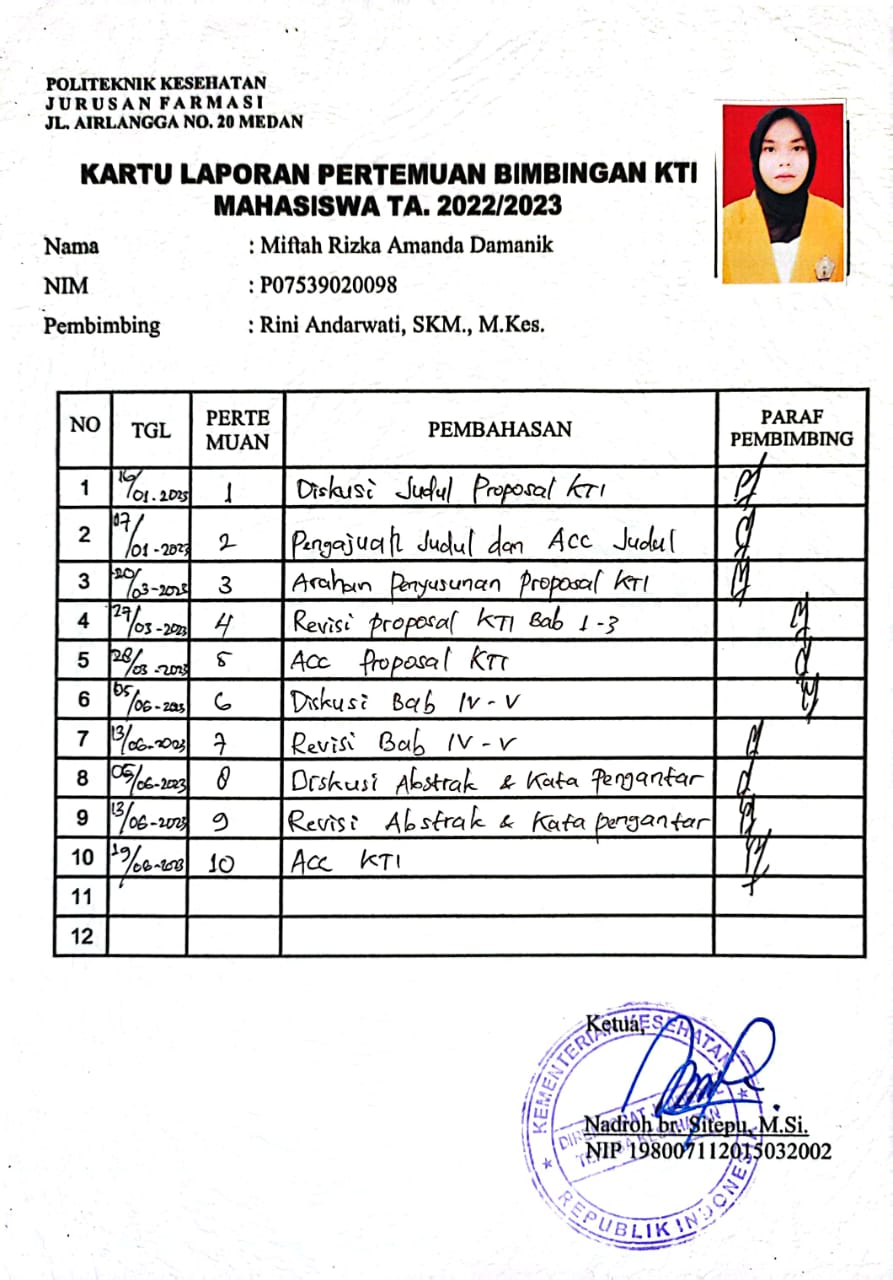 POLITEKNIK KESEHATAN
JURUSAN FARMASI
JL. AIRLANGGA NO. 20 MEDAN
KARTU LAPORAN PERTEMUAN BIMBINGAN KTI
MAHASISWA TA. 2022/2023
Nama : Miftah Rizka Amanda Damanik
NIM : P07539020098
Pembimbing : Rini Andarwati, SKM., M.Kes.
NO TGL PERTE MUAN PEMBAHASAN PARAF PEMBIMBING
1 16/01-2023 1 Diskusi Judul Proposal KTI
2 07/01-2023 2 Pengajuan Judul dan ACC Judul
3 20/03-2023 3 Arahan Penyusunan Proposal KTI
4 27/03-2023 4 Revisi proposal KTI Bab 1-3
5 28/03-2023 5 ACC Proposal KTI
6 05/06-2023 6 Diskusi Bab IV-V
7 13/06-2023 7 Revisi Bab IV-V
8 05/06-2023 8 Diskusi Abstrak & Kata Pengantar
9 13/06-2023 9 Revisi Abstrak & Kata pengantar
10 19/06-2023 10 Acc KTI
11
12
Ketua,
Nadroh br. Sitepu, M.Si.
NIP 198007112015032002
KEMENTERIAN KESEHATAN
REPUBLIK INDONESIA